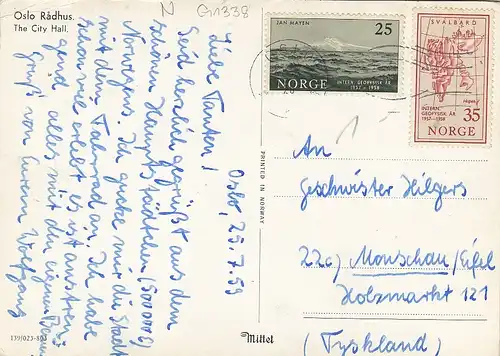 N G1338
Oslo Rådhus.
The City Hall.
Oslo, 25.7.59
Liebe Tanten!
Seid herzlich gegrüßt aus dem
schönen Hauptstädtchen (500000)
Norwegens. Ich gucke mir die Stadt
mit dem Fahrrad an. Ich habe
schon viel erlebt es ist anstren-
gend alles mit den eigenen
Gruß von Eurem Wolfgang
139/023-803
PRINTED IN NORWAY
Mittet
JAN MAYEN
25
NORGE
INTERN. GEOFYSISK ÅR
1957-1958
SVALBARD
INTERN.
GEOFYSISK ÅR
1957-1958
35
NORGE
1-
An
Geschwister Hilgers
22c) Monschau/Eifel
Holzmarkt 121
(Tyskland)